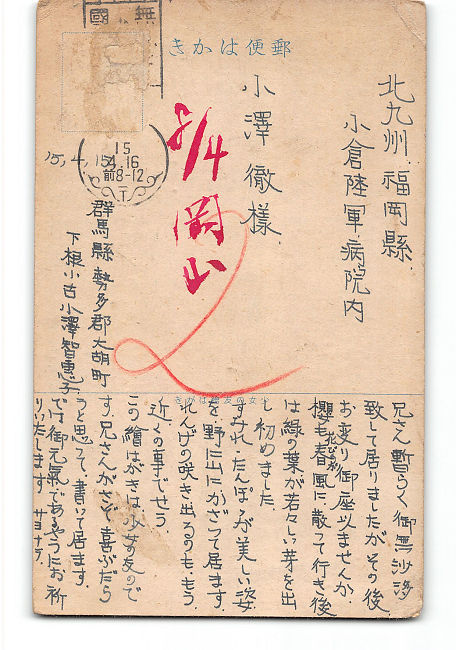 無
國
郵便はかき
北九州福岡縣
小倉陸軍病院内
小澤徹様
2/4
岡山
15,4,15
15
4.16
前8-12
T
群馬縣勢多郡大胡町
下根小古小澤智恵子
少女の友繪はがき
兄さん暫らく御無沙汰
致して居りましたがその後
お変り御座いませんか
櫻も春風に散って行き後
は緑の葉が若々しい芽を出
し初めました
すみれ、たんぽぽが美しい姿
を野に山にかざって居ます
れんげの咲き出るのも、もう
近くの事でせう
この繪はがきは少女の友ので
す、兄さんがさぞ喜ぶだら
うと思って、書いて居ます
では御元氣であるやうにお祈
りいたします サヨナラ